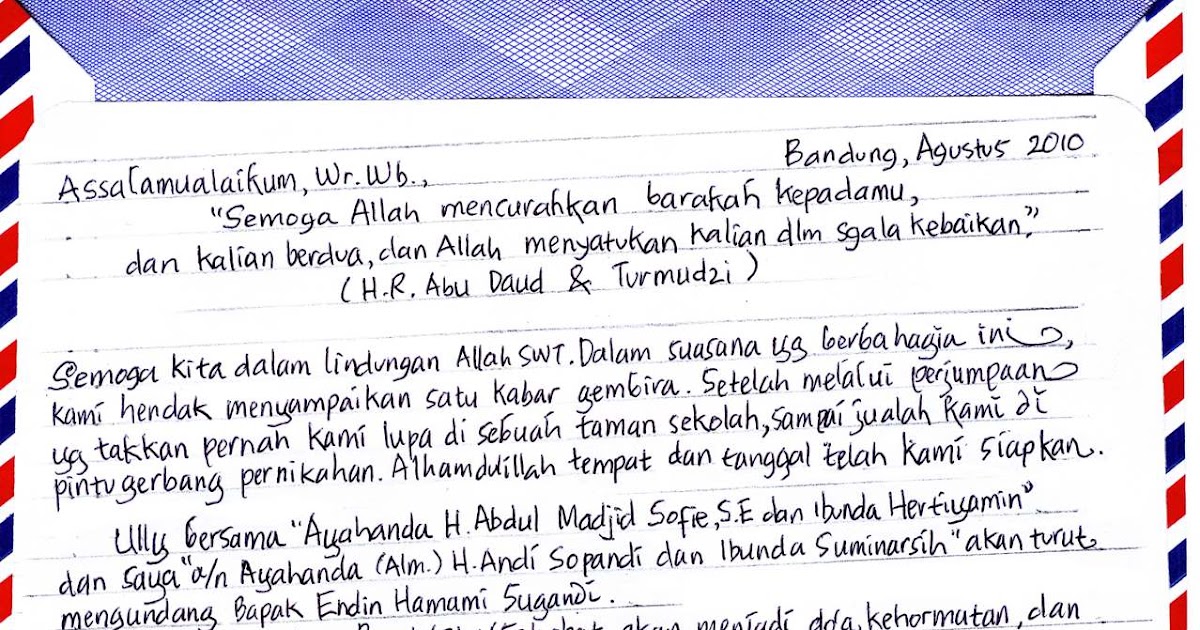 Bandung, Agustus 2010
Assalamualaikum, Wr. Wb.,
"Semoga Allah mencurahkan barakah kepadamu,
dan kalian berdua, dan Allah menyatukan kalian dlm sgala kebaikan."
(H.R. Abu Daud & Turmudzi)
Semoga kita dalam lindungan Allah SWT. Dalam suasana yg berbahagia ini,
kami hendak menyampaikan satu kabar gembira. Setelah melalui perjumpaan
yg takkan pernah kami lupa di sebuah taman sekolah, sampai jualah kami di
pintu gerbang pernikahan. Alhamdulillah tempat dan tanggal telah kami siapkan.
Ully bersama "Ayahanda H. Abdul Madjid Sofie, S.E dan Ibunda Hertiyamin"
dan saya "a/n Ayahanda (Alm.) H. Andi Sopandi dan Ibunda Suminarsih" akan turut
mengundang Bapak Endin Hamami Sugandi.
akan menjadi doa, kehormatan, dan